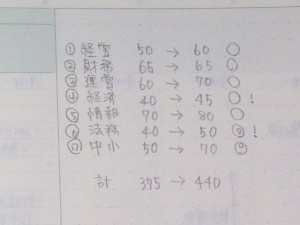 ① 経営 50 → 60 ○
② 財務 65 → 65 ○
③ 運営 60 → 70 ○
④ 経済 40 → 45 ○ !
⑤ 情報 70 → 80 ○
⑥ 法務 40 → 50 ◎ !
⑦ 中小 50 → 70 ◎
計 375 → 440